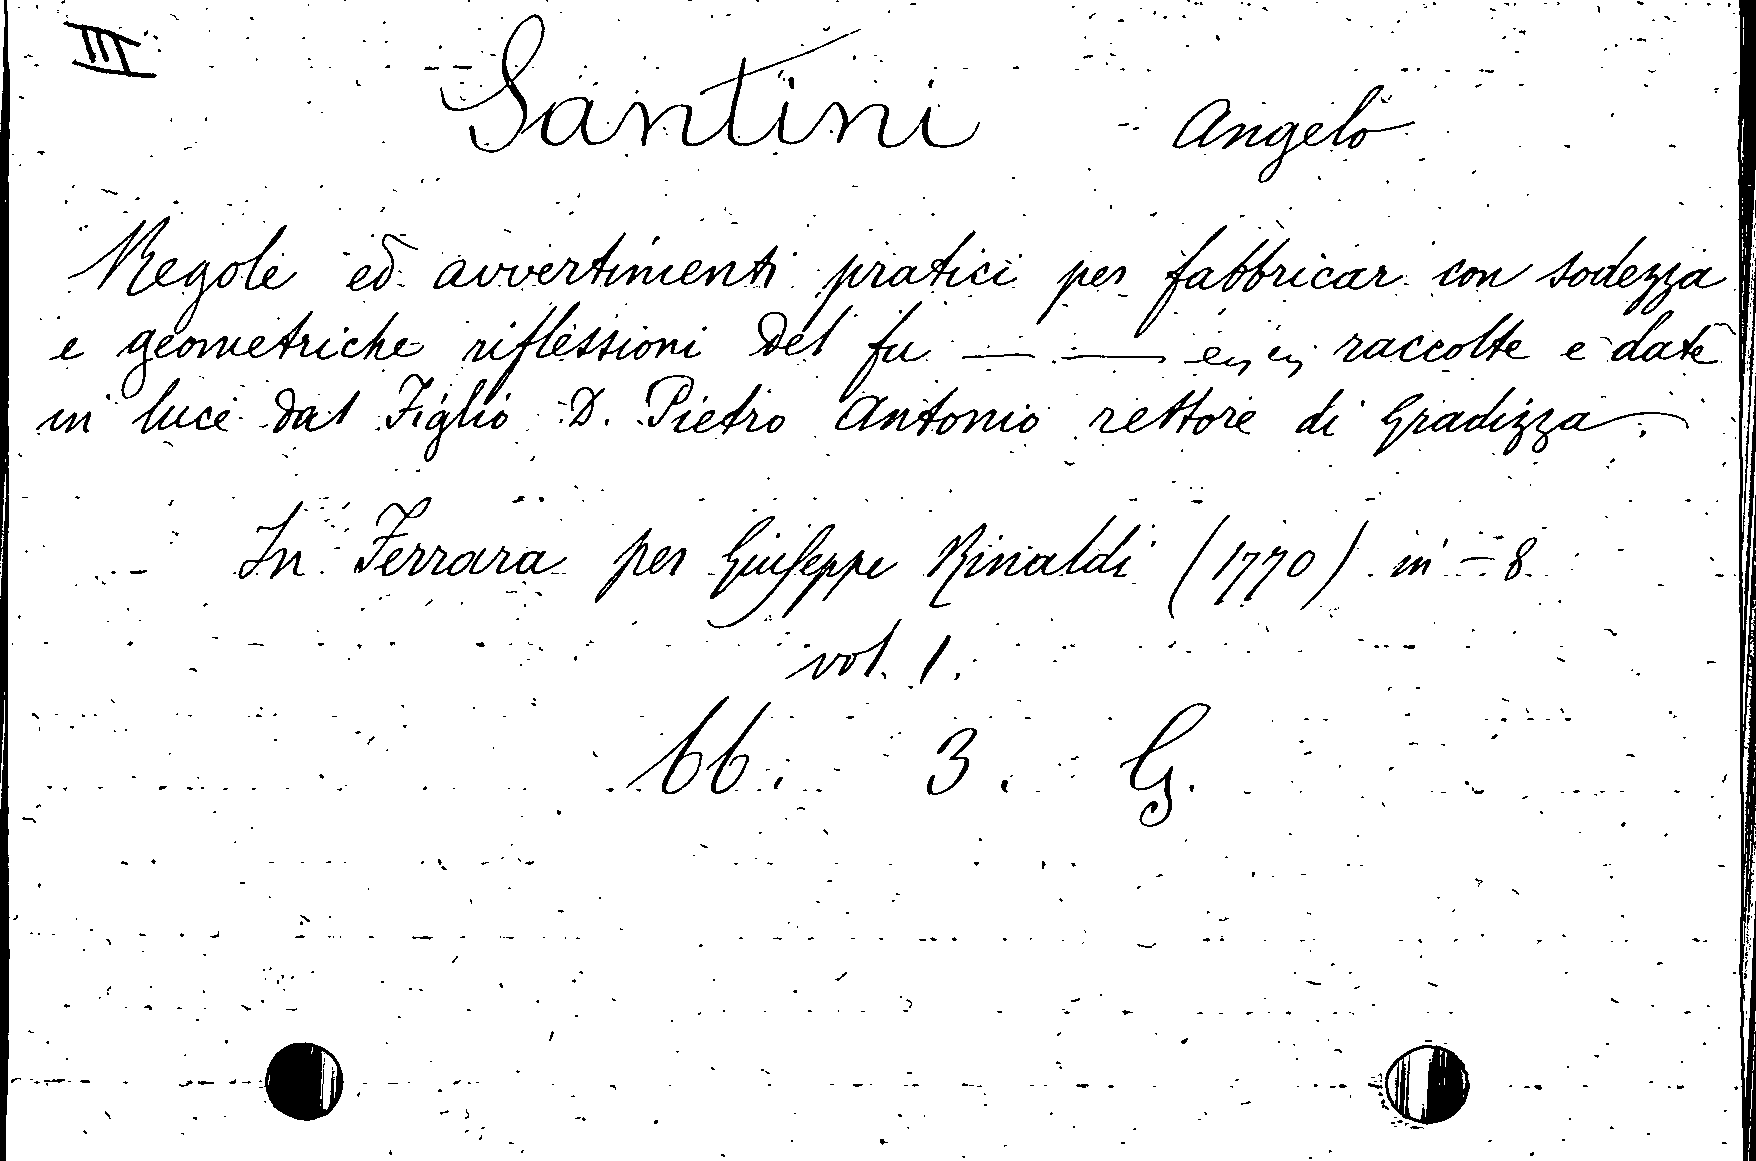 III
Santini Angelo
Regole ed avvertimenti pratici per fabbricar con sodezza
e geometriche riflessioni del fu — — raccolte e date
in luce dal Figlio D. Pietro Antonio rettore di Gradizza.
In Ferrara per Giuseppe Rinaldi (1770) in-8
vol. 1.
66. 3. G.